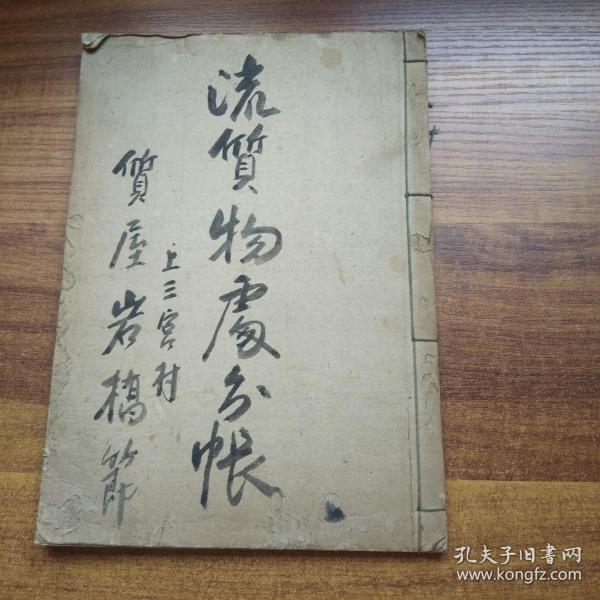 流質物處分帳
上三宮村
質屋岩橋節
孔夫子旧书网
www.kongfz.com